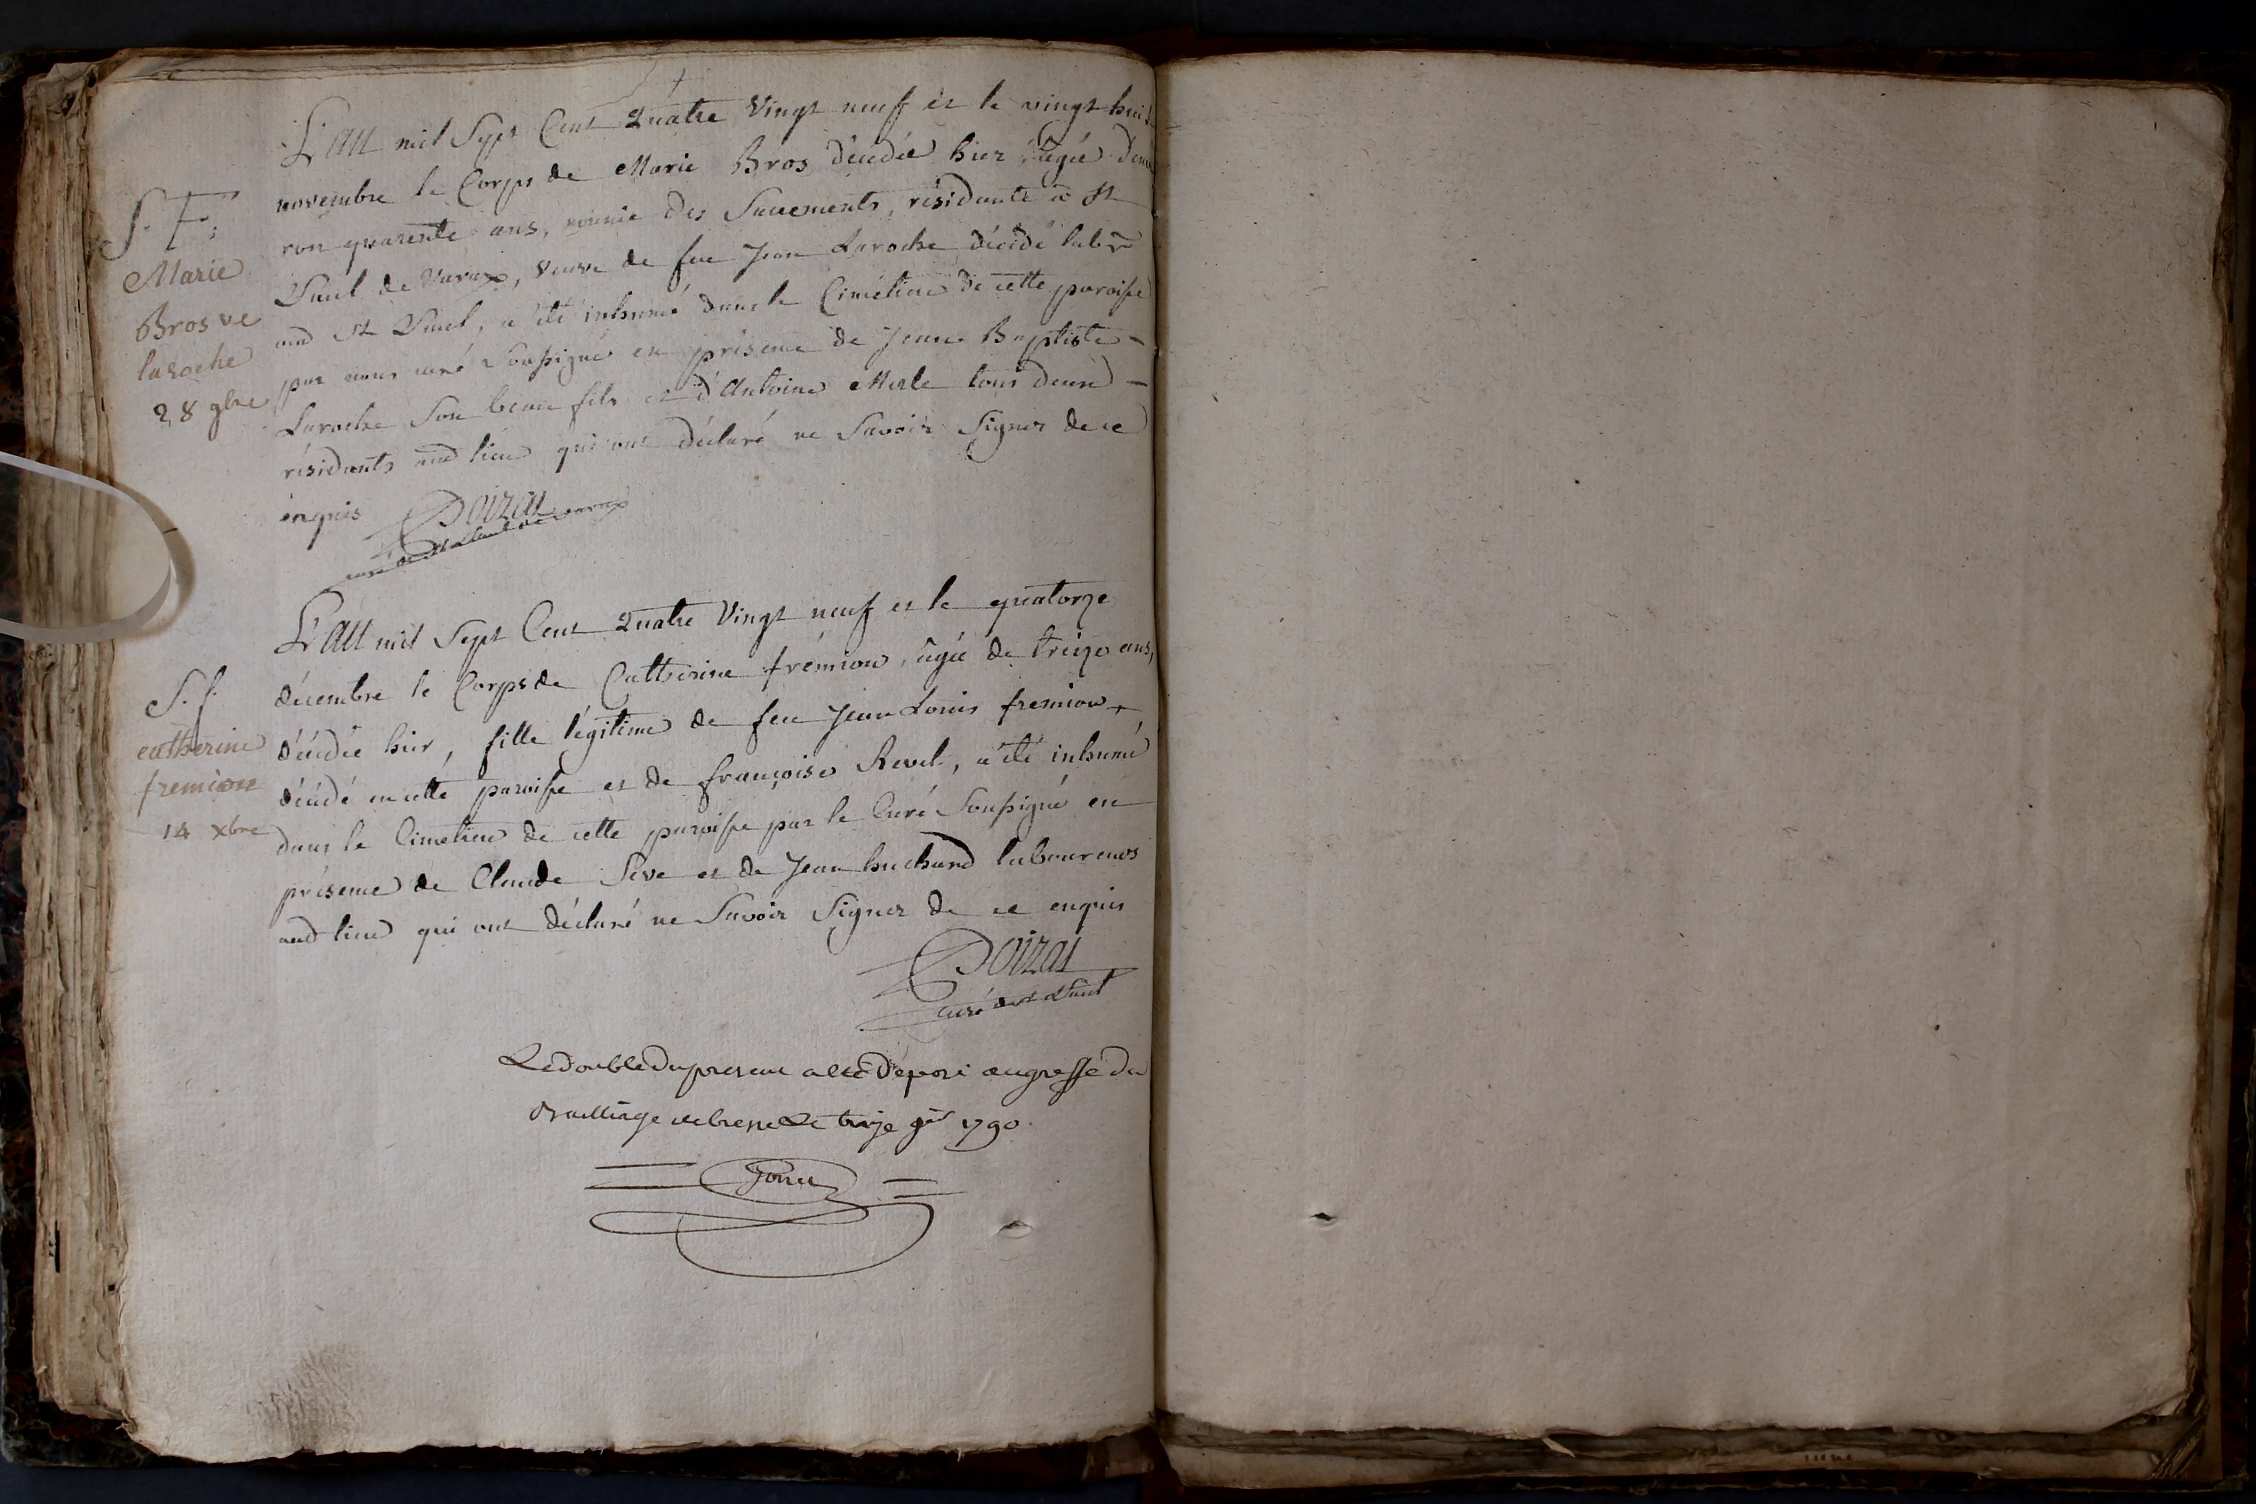 L'an mil Sept Cent Quatre Vingt neuf et le vingt huit
novembre le Corps de Marie Bros décédée hier, agée d'envi
ron quarente ans, munie des Sacrements, résidante à St
Paul de Varax, veuve de feu Jean Laroche décédé labr
aud St Paul, a été inhumé dans le Cimétiere de cette paroisse
par nous curé Soussigné en présence de Jean Baptiste
Laroche Son beau fils et d'Antoine Merle tous deux
résidants aud lieu qui ont déclaré ne Savoir Signer de ce
enquis
Poizat
curé de St Paul de varax
S. F.
Marie
Bros ve
laroche
28 9bre
L'an mil Sept Cent Quatre Vingt neuf et le quatorze
décembre le Corps de Catherine frémion, agée de treize ans,
décédée hier, fille légitime de feu Jean Louis fremion
décédé en cette paroisse et de françoise Revel, a été inhumé
dans le Cimetiere de cette paroisse par le Curé Soussigné en
présence de Claude Seve et de Jean huchard laboureurs
aud lieu qui ont déclaré ne Savoir Signer de ce enquis
Poizat
curé de St Paul
S. f.
catherine
fremion
14 xbre
Le double du present a été déposé au greffe du
Bailliage de bresse Le treize 1790